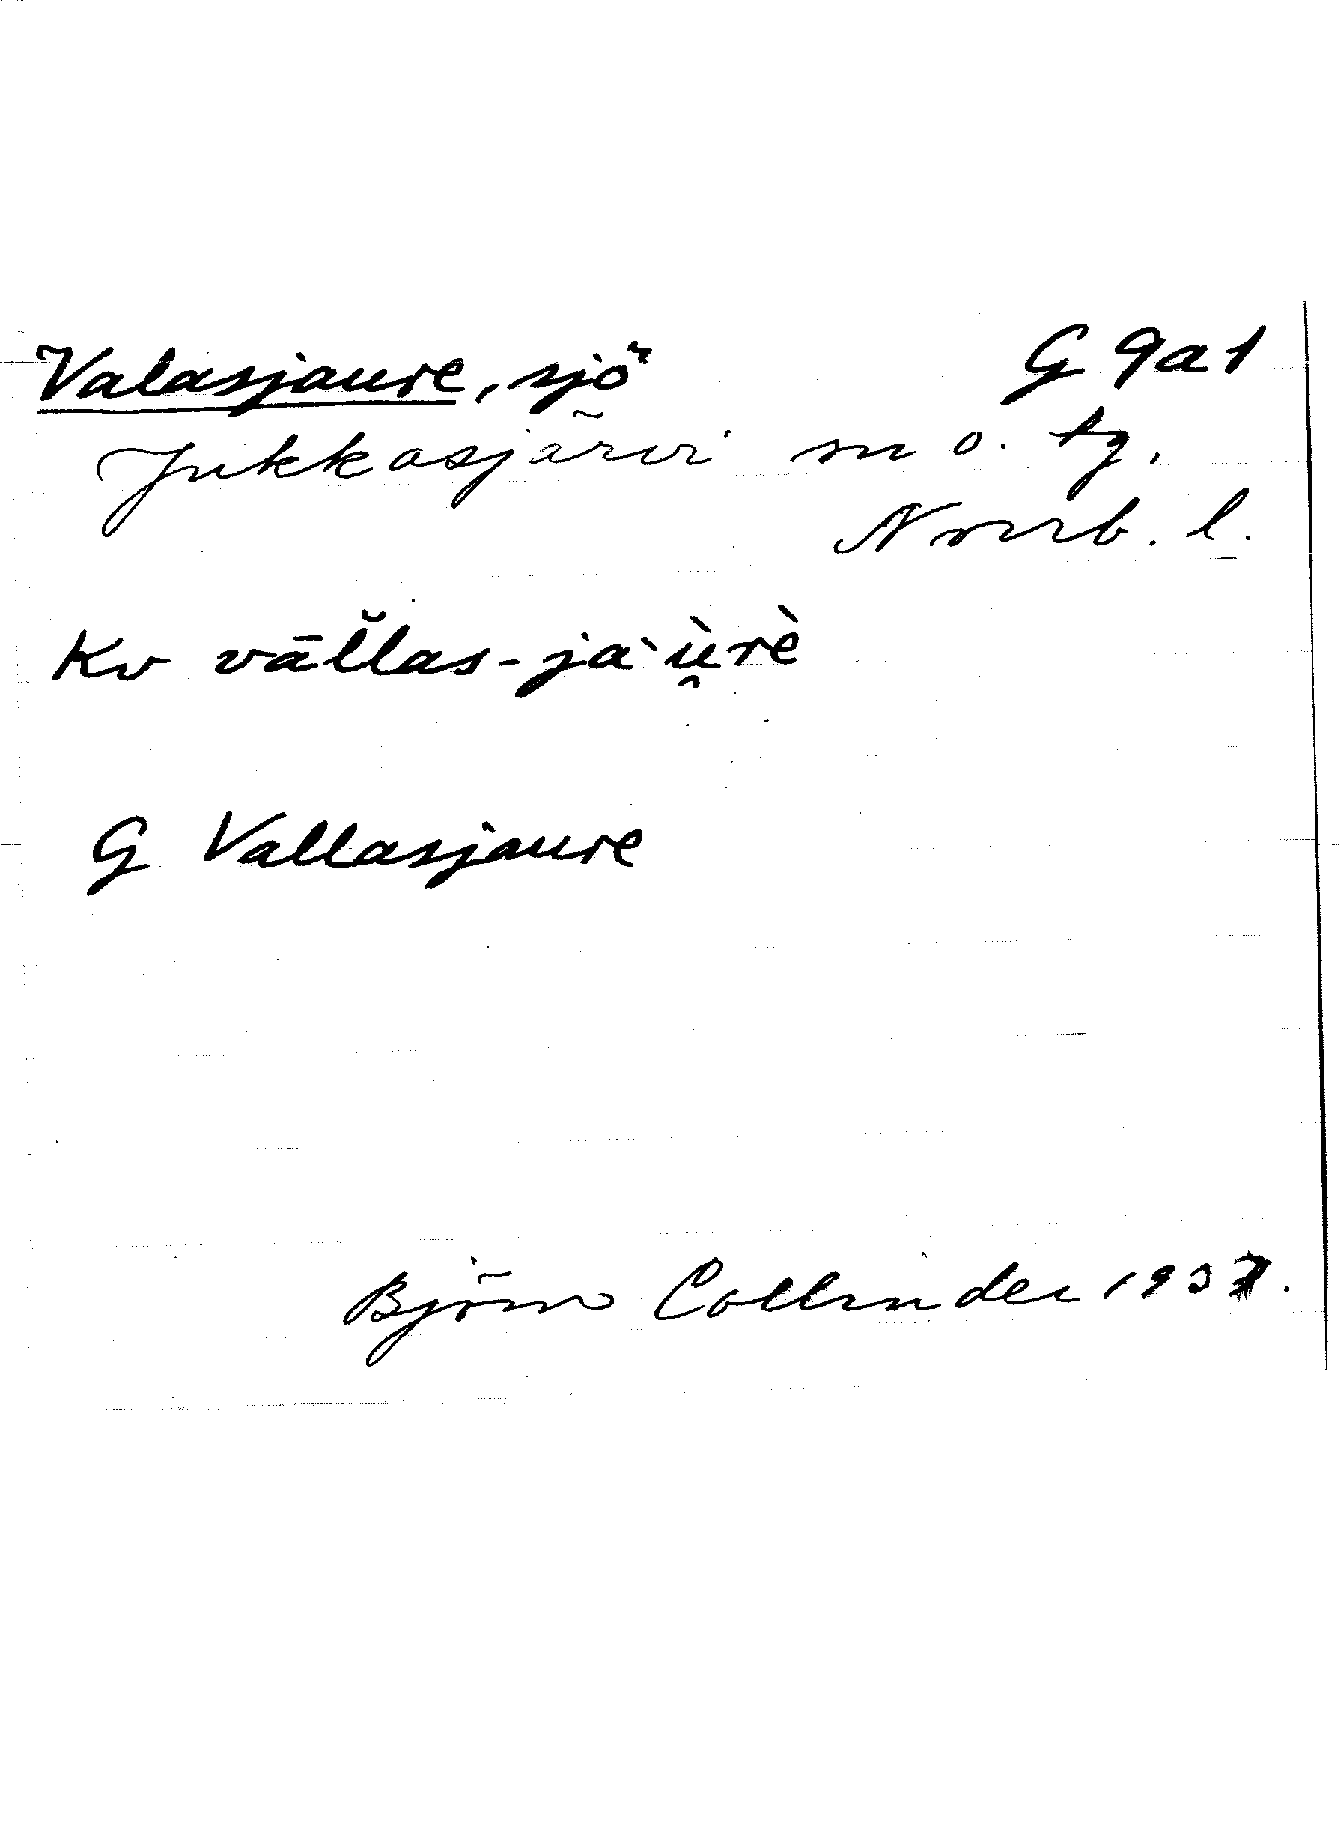 Valasjaure, sjö G 9a1
Jukkasjärvi sn o. tg,
Norrb. l.
Kv vāl̆las-jàù̯rè
G Vallasjaure
Björn Collinder 1937.